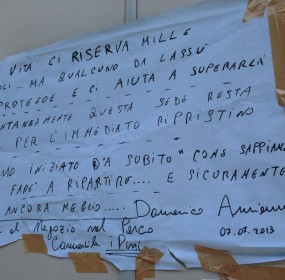 VITA CI RISERVA MILLE
OLI... MA QUALCUNO DA LASSÙ
PROTEGGE E CI AIUTA A SUPERARLA
NTANEAMENTE QUESTA SEDE RESTA
PER L'IMMEDIATO RIPRISTINO
MO INIZIATO DA SUBITO "COME SAPPIAMO
FARE" A RIPARTIRE.... E SICURAMENTE
ANCORA MEGLIO.... Domenico
il Negozio nel Parco
Comm.le i Pini
07.07.2013